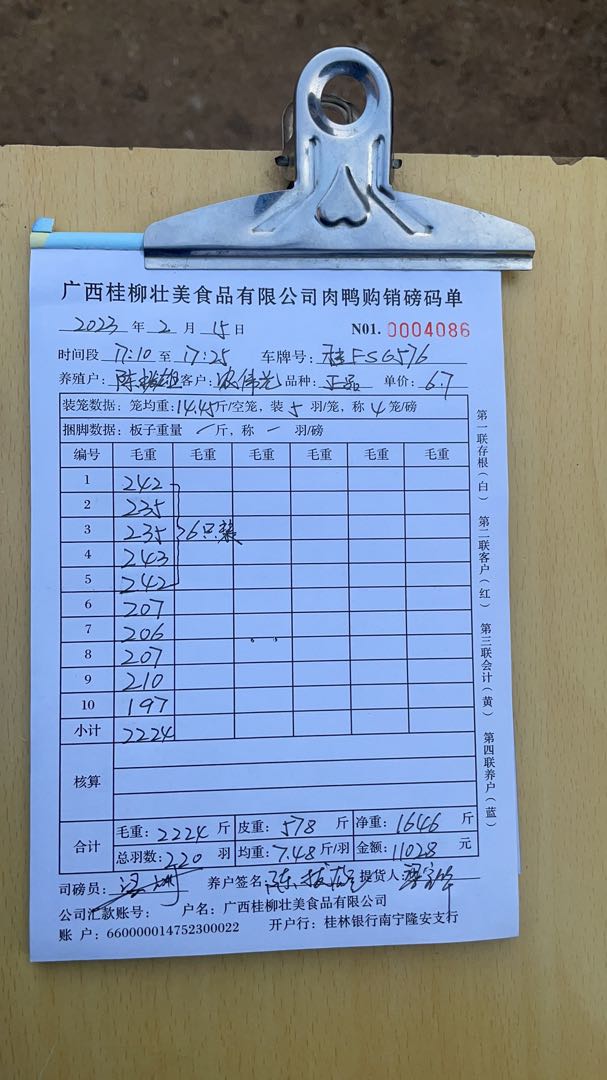 广西桂柳壮美食品有限公司肉鸭购销磅码单
2023 年 2 月 15 日 N01. 0004086
时间段 17:10 至 17:25 车牌号: 桂FS6576
养殖户: 陈 客户: 农伟光 品种: 正品 单价: 6.7
装笼数据: 笼均重: 14.45 斤/空笼, 装 5 羽/笼, 称 4 笼/磅
捆脚数据: 板子重量 / 斤, 称 一 羽/磅
编号 毛重 毛重 毛重 毛重 毛重 毛重
1 242
2 235
3 235 6只装
4 243
5 242
6 207
7 206
8 207
9 210
10 197
小计 2224
核算
合计 毛重: 2224 斤 皮重: 578 斤 净重: 1646 斤
总羽数: 220 羽 均重: 7.48 斤/羽 金额: 11028 元
司磅员: 养户签名: 陈 提货人:
公司汇款账号: 户名: 广西桂柳壮美食品有限公司
账 户: 660000014752300022 开户行: 桂林银行南宁隆安支行
第一联存根(白) 第二联客户(红) 第三联会计(黄) 第四联养户(蓝)